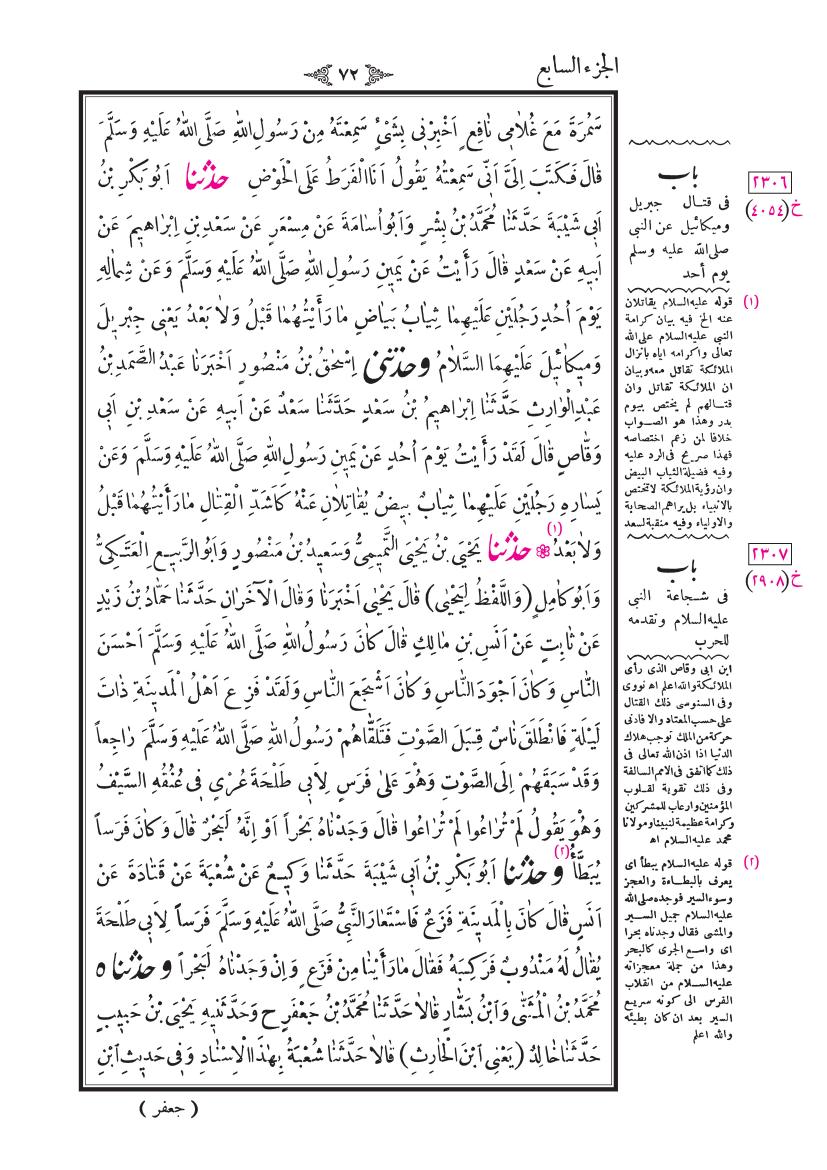 الجزء السابع
٧٢
سَمُرَةَ مَعَ غُلَامِى نَافِعٍ اَخْبِرْنِى بِشَىْءٍ سَمِعْتَهُ مِنْ رَسُولِ اللهِ صَلَّى اللهُ عَلَيْهِ وَسَلَّمَ
قَالَ فَكَتَبَ اِلَىَّ اَنِّى سَمِعْتُهُ يَقُولُ اَنَا الْفَرَطُ عَلَى الْحَوْضِ حَدَّثَنَا اَبُو بَكْرِ بْنُ
اَبِى شَيْبَةَ حَدَّثَنَا مُحَمَّدُ بْنُ بِشْرٍ وَاَبُو اُسَامَةَ عَنْ مِسْعَرٍ عَنْ سَعْدِ بْنِ اِبْرَاهِيمَ عَنْ
اَبِيهِ عَنْ سَعْدٍ قَالَ رَأَيْتُ عَنْ يَمِينِ رَسُولِ اللهِ صَلَّى اللهُ عَلَيْهِ وَسَلَّمَ وَعَنْ شِمَالِهِ
يَوْمَ اُحُدٍ رَجُلَيْنِ عَلَيْهِمَا ثِيَابُ بَيَاضٍ مَا رَأَيْتُهُمَا قَبْلُ وَلَا بَعْدُ يَعْنِى جِبْرِيلَ
وَمِيكَائِيلَ عَلَيْهِمَا السَّلَامُ وَحَدَّثَنِى اِسْحٰقُ بْنُ مَنْصُورٍ اَخْبَرَنَا عَبْدُ الصَّمَدِ بْنُ
عَبْدِ الْوَارِثِ حَدَّثَنَا اِبْرَاهِيمُ بْنُ سَعْدٍ حَدَّثَنَا سَعْدٌ عَنْ اَبِيهِ عَنْ سَعْدِ بْنِ اَبِى
وَقَّاصٍ قَالَ لَقَدْ رَأَيْتُ يَوْمَ اُحُدٍ عَنْ يَمِينِ رَسُولِ اللهِ صَلَّى اللهُ عَلَيْهِ وَسَلَّمَ وَعَنْ
يَسَارِهِ رَجُلَيْنِ عَلَيْهِمَا ثِيَابٌ بِيضٌ يُقَاتِلَانِ عَنْهُ كَاَشَدِّ الْقِتَالِ مَا رَأَيْتُهُمَا قَبْلُ
وَلَا بَعْدُ (١) ❁ حَدَّثَنَا يَحْيَى بْنُ يَحْيَى التَّمِيمِىُّ وَسَعِيدُ بْنُ مَنْصُورٍ وَاَبُو الرَّبِيعِ الْعَتَكِىُّ
وَاَبُو كَامِلٍ (وَاللَّفْظُ لِيَحْيٰى) قَالَ يَحْيٰى اَخْبَرَنَا وَقَالَ الْآخَرَانِ حَدَّثَنَا حَمَّادُ بْنُ زَيْدٍ
عَنْ ثَابِتٍ عَنْ اَنَسِ بْنِ مَالِكٍ قَالَ كَانَ رَسُولُ اللهِ صَلَّى اللهُ عَلَيْهِ وَسَلَّمَ اَحْسَنَ
النَّاسِ وَكَانَ اَجْوَدَ النَّاسِ وَكَانَ اَشْجَعَ النَّاسِ وَلَقَدْ فَزِعَ اَهْلُ الْمَدِينَةِ ذَاتَ
لَيْلَةٍ فَانْطَلَقَ نَاسٌ قِبَلَ الصَّوْتِ فَتَلَقَّاهُمْ رَسُولُ اللهِ صَلَّى اللهُ عَلَيْهِ وَسَلَّمَ رَاجِعاً
وَقَدْ سَبَقَهُمْ اِلَى الصَّوْتِ وَهُوَ عَلٰى فَرَسٍ لِاَبِى طَلْحَةَ عُرْىٍ فِى عُنُقِهِ السَّيْفُ
وَهُوَ يَقُولُ لَمْ تُرَاعُوا لَمْ تُرَاعُوا قَالَ وَجَدْنَاهُ بَحْراً اَوْ اِنَّهُ لَبَحْرٌ قَالَ وَكَانَ فَرَساً
يُبَطَّأُ (٢) وَحَدَّثَنَا اَبُو بَكْرِ بْنُ اَبِى شَيْبَةَ حَدَّثَنَا وَكِيعٌ عَنْ شُعْبَةَ عَنْ قَتَادَةَ عَنْ
اَنَسٍ قَالَ كَانَ بِالْمَدِينَةِ فَزَعٌ فَاسْتَعَارَ النَّبِىُّ صَلَّى اللهُ عَلَيْهِ وَسَلَّمَ فَرَساً لِاَبِى طَلْحَةَ
يُقَالُ لَهُ مَنْدُوبٌ فَرَكِبَهُ فَقَالَ مَا رَأَيْنَا مِنْ فَزَعٍ وَاِنْ وَجَدْنَاهُ لَبَحْراً وَحَدَّثَنَاه
مُحَمَّدُ بْنُ الْمُثَنّٰى وَابْنُ بَشَّارٍ قَالَا حَدَّثَنَا مُحَمَّدُ بْنُ جَعْفَرٍ ح وَحَدَّثَنِيهِ يَحْيَى بْنُ حَبِيبٍ
حَدَّثَنَا خَالِدٌ (يَعْنِى ابْنَ الْحَارِثِ) قَالَا حَدَّثَنَا شُعْبَةُ بِهٰذَا الْاِسْنَادِ وَفِى حَدِيثِ ابْنِ
( جعفر )
٢٣٠٦
خ (٤٠٥٤)
باب
فى قتال جبريل
وميكائيل عن النبى
صلى الله عليه وسلم
يوم أحد
(١) قوله عليه السلام يقاتلان
عنه الخ فيه بيان كرامة
النبى عليه السلام على الله
تعالى واكرامه اياه بانزال
الملائكة تقاتل معه وبيان
ان الملائكة تقاتل وان
قتالهم لم يختص بيوم
بدر وهذا هو الصواب
خلافا لمن زعم اختصاصه
فهذا صريح فى الرد عليه
وفيه فضيلة الثياب البيض
وان رؤية الملائكة لا تختص
بالانبياء بل يراهم الصحابة
والاولياء وفيه منقبة لسعد
٢٣٠٧
خ (٢٩٠٨)
باب
فى شجاعة النبى
عليه السلام وتقدمه
للحرب
ابن ابى وقاص الذى رأى
الملائكة والله اعلم اه نووى
وفى السنوسى ذلك القتال
على حسب المعتاد والا فادنى
حركة من الملك توجب هلاك
الدنيا اذا اذن الله تعالى فى
ذلك كما اتفق فى الامم السالفة
وفى ذلك تقوية لقلوب
المؤمنين وارعاب للمشركين
وكرامة عظيمة لنبينا ومولانا
محمد عليه السلام اه
(٢) قوله عليه السلام يبطأ اى
يعرف بالبطاءة والعجز
وسوء السير فوجده صلى الله
عليه السلام جميل السير
والمشى فقال وجدناه بحرا
اى واسع الجرى كالبحر
وهذا من جملة معجزاته
عليه السلام من انقلاب
الفرس الى كونه سريع
السير بعد ان كان بطيئه
والله اعلم